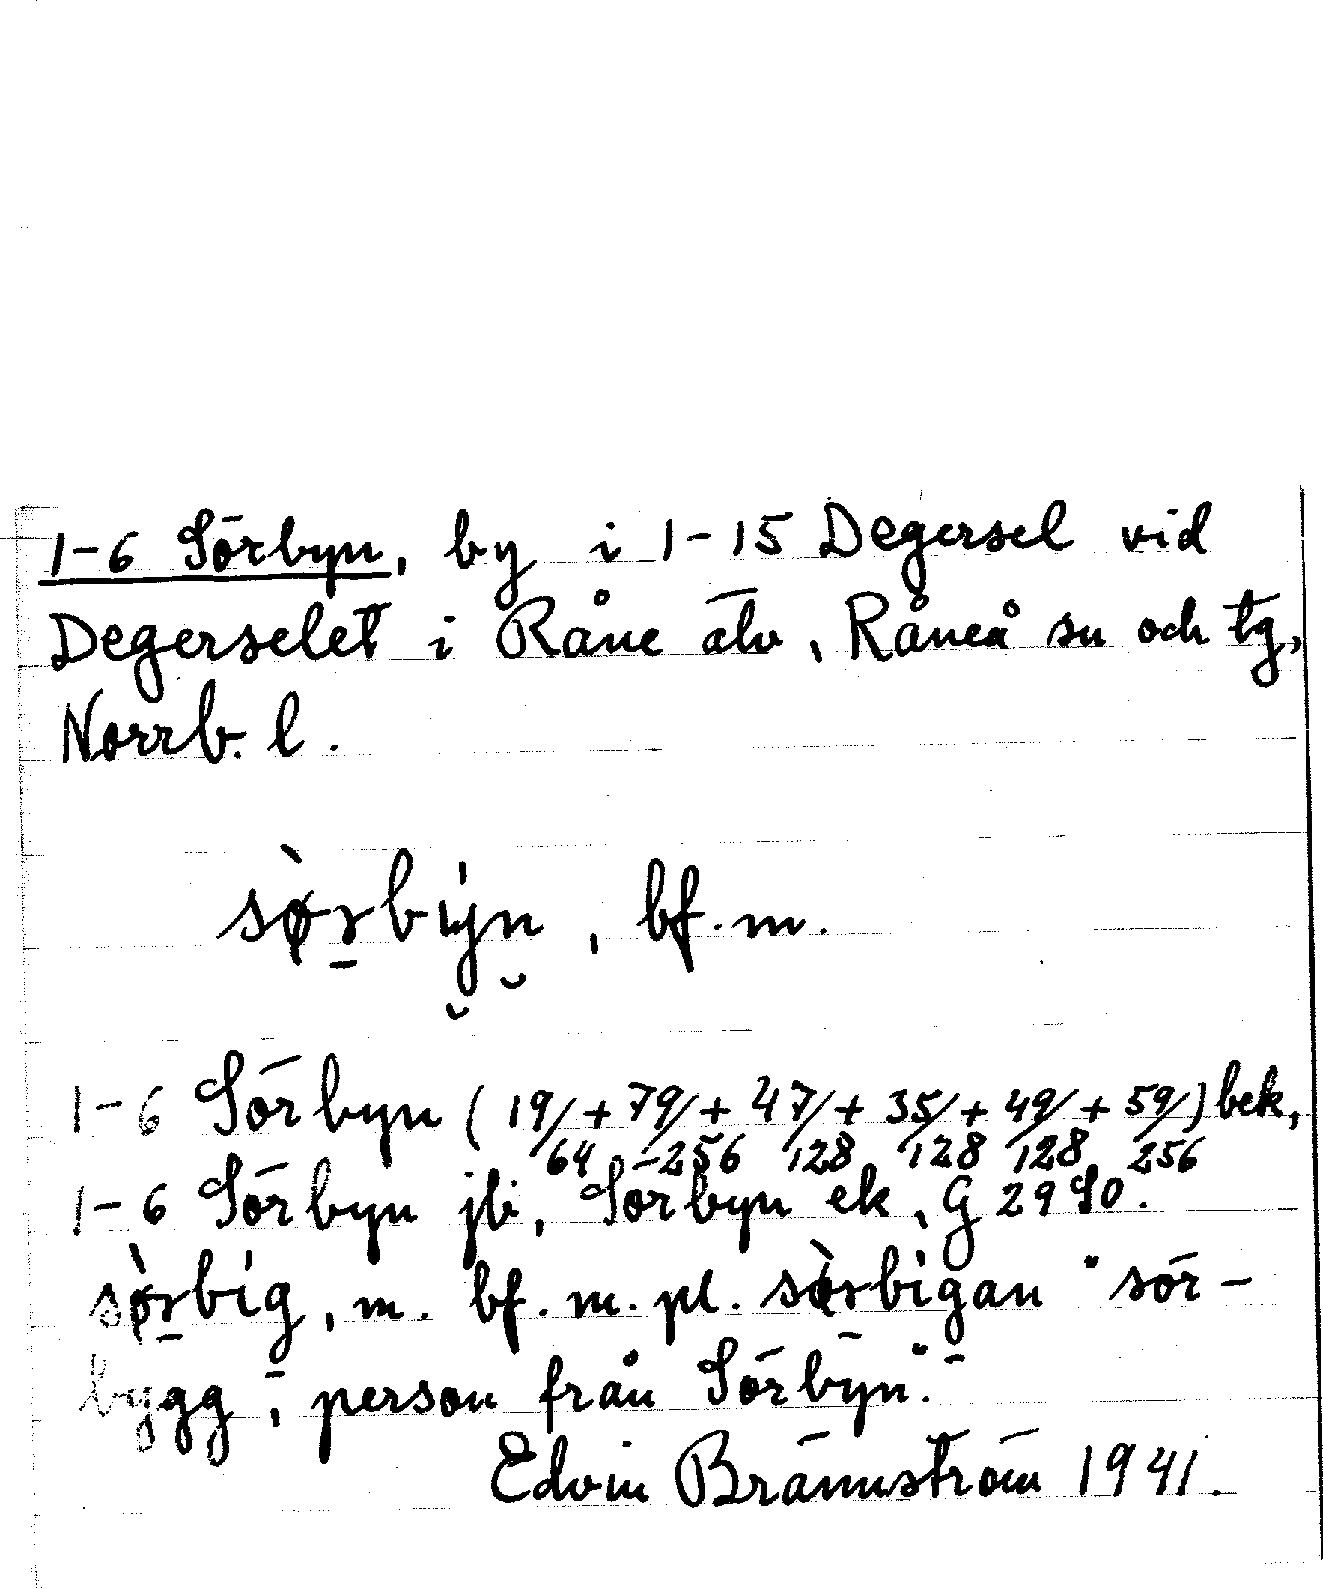 1-6 Sörbyn, by i 1-15 Degersel vid
Degerselet i Råne älv, Råneå sn och tg,
Norrb. l.
sø̀rbyn, bf. m.
1-6 Sörbyn (19/64 + 79/256 + 47/128 + 35/128 + 49/128 + 59/256) bek,
1-6 Sörbyn jb, Sörbyn ek, G 29 SO.
sø̀rbig, m. bf. m. pl. sø̀rbigan "sör-
bygg", person från Sörbyn.
Edvin Brännström 1941.